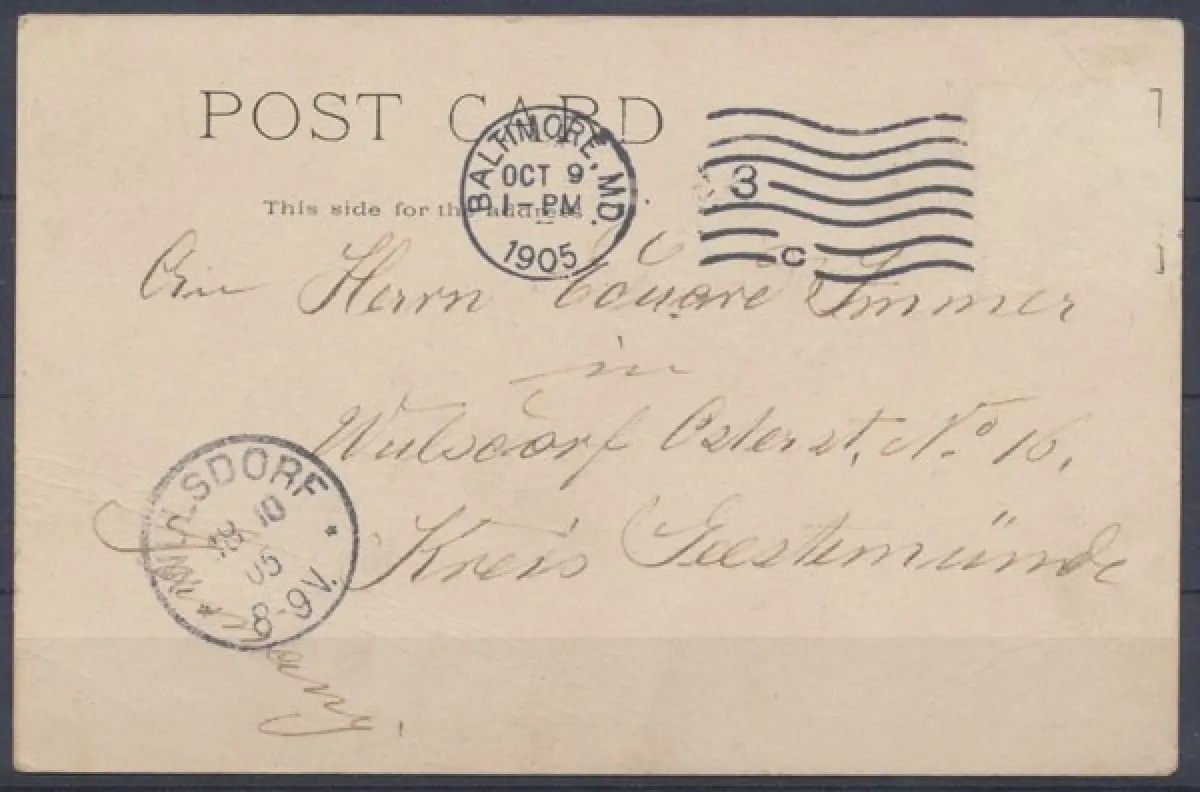 POST CARD
This side for the address
BALTIMORE, MD.
OCT 9
1-PM
1905
3
C
An Herrn Eduard Immer
in
Wulsdorf Osterst, No 16,
Kreis Geestemünde
Germany.
WULSDORF
10
05
8-9V.